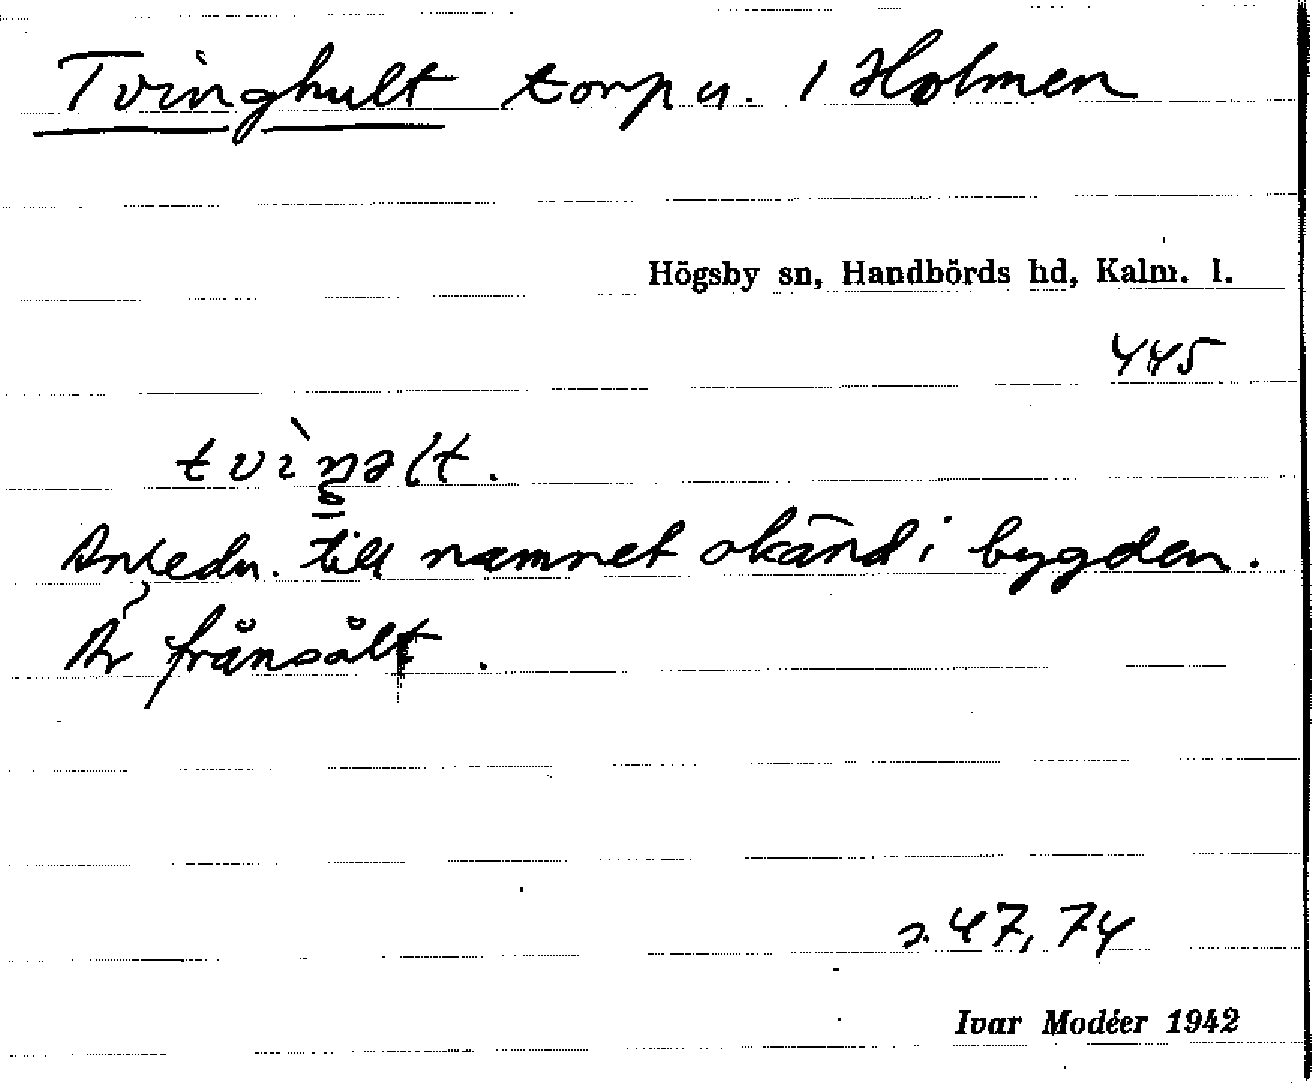 Tvinghult torp u. 1 Holmen
Högsby sn, Handbörds hd, Kalm. l.
445
tvìŋəlt.
Anledn. till namnet okänd i bygden.
Är frånsålt.
s. 47, 74
Ivar Modéer 1942